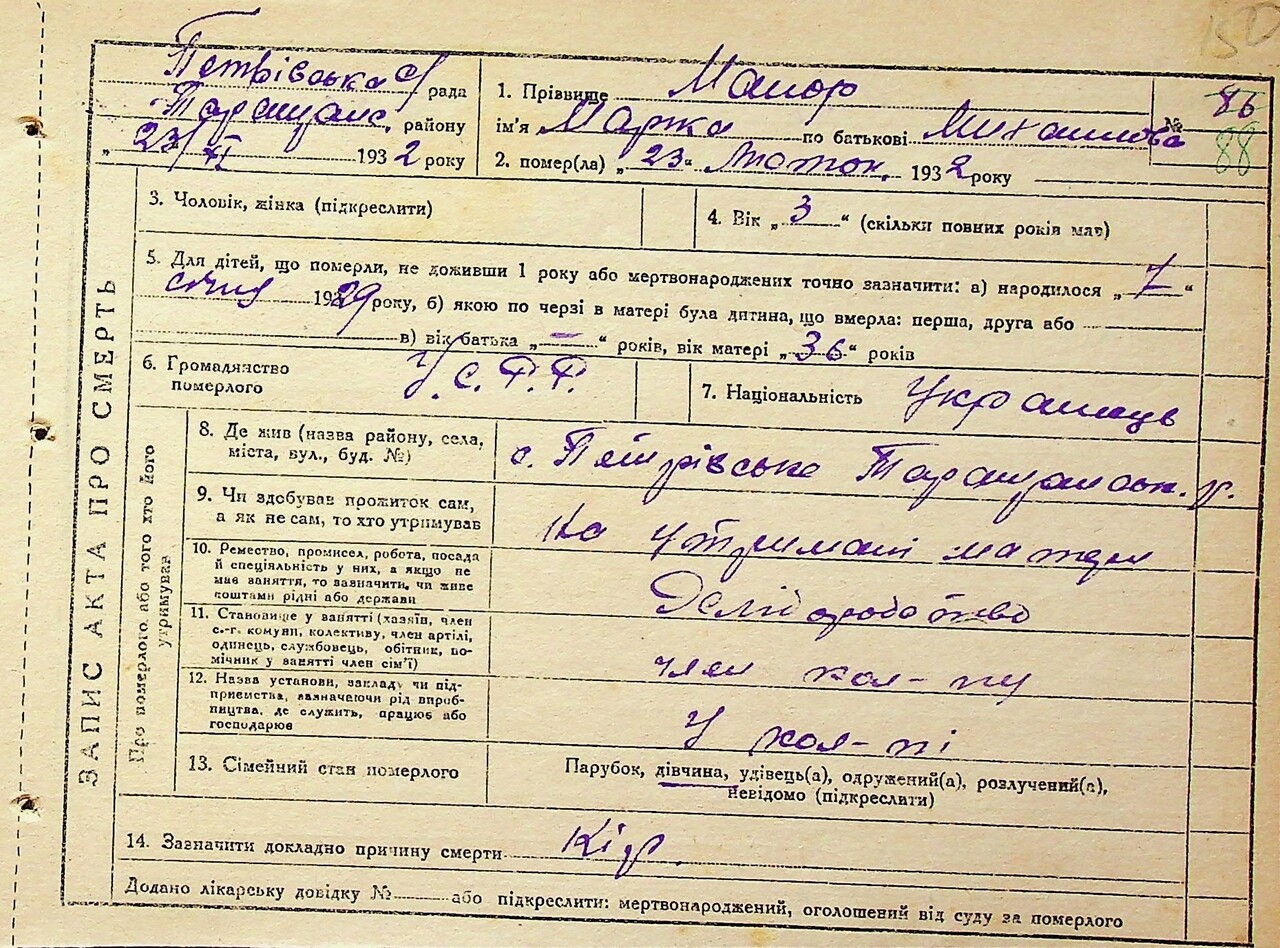 150
Петвівська с/рада
Таращанс. району
„ 23/II 1932 року
1. Прівзище Мапор
№ 86
88
ім'я Марка по батькові Михаилова
2. помер(ла) „23“ Люток. 1932 року
ЗАПИС АКТА ПРО СМЕРТЬ
3. Чоловік, жінка (підкреслити)
4. Вік „3“ (скільки повних років мав)
5. Для дітей, що померли, не доживши 1 року або мертвонароджених точно зазначити: а) народилося „7“
січня 1929 року, б) якою по черзі в матері була дитина, що вмерла: перша, друга або
в) вік батька „—“ років, вік матері „36“ років
6. Громадянство
померлого
У.С.Р.Р.
7. Національність Українець
Про померлого або того хто його
утримував
8. Де жив (назва району, села,
міста, вул., буд. №)
с. Петрівське Таращанськ. р.
9. Чи здобував прожиток сам,
а як не сам, то хто утримував
На утримані матери
10. Ремество, промисел, робота, посада
й спеціяльність у них, а якщо не
має заняття, то зазначити, чи живе
коштами рідні або держави
11. Становище у занятті (хазяїн, член
с.-г. комуни, колективу, член артілі,
одинець, службовець, обітник, по-
мічник у занятті член сім'ї)
член кол-ну
12. Назва установи, закладу чи під-
приємства, зазначаючи рід вироб-
ництва, де служить, працює або
господарює
У кол-ні
13. Сімейний стан померлого
Парубок, дівчина, удівець(а), одружений(а), розлучений(а),
невідомо (підкреслити)
14. Зазначити докладно причину смерти Кір.
Додано лікарську довідку № або підкреслити: мертвонароджений, оголошений від суду за померлого